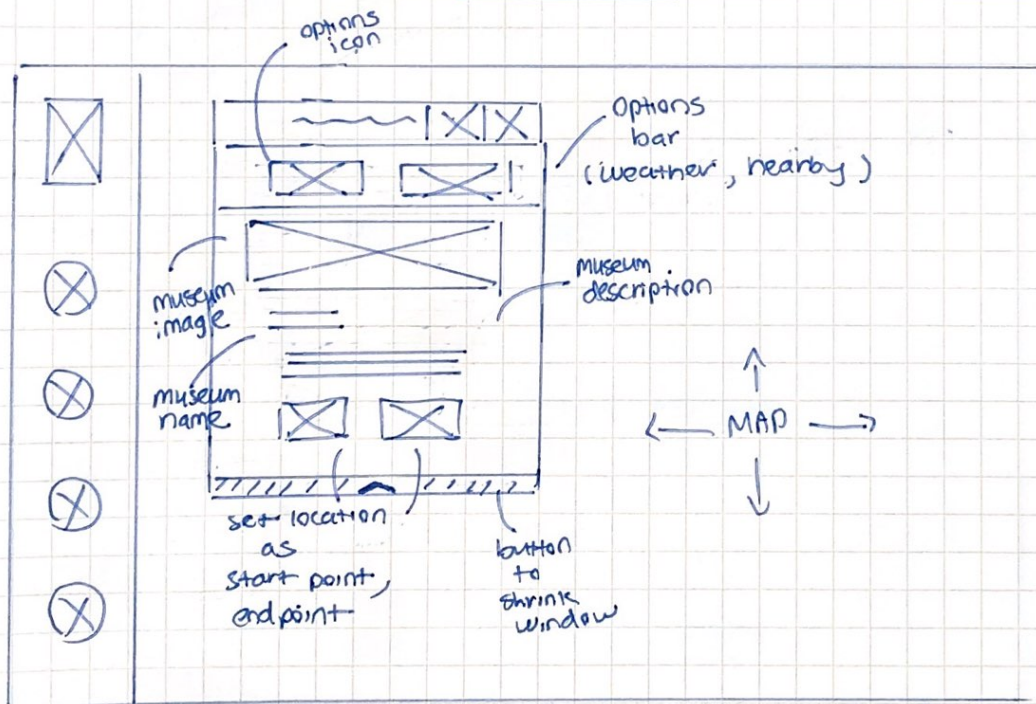 options
icon
Options
bar
(weather, nearby)
museum
image
museum
description
museum
name
MAP
set location
as
start point,
endpoint
button
to
shrink
window